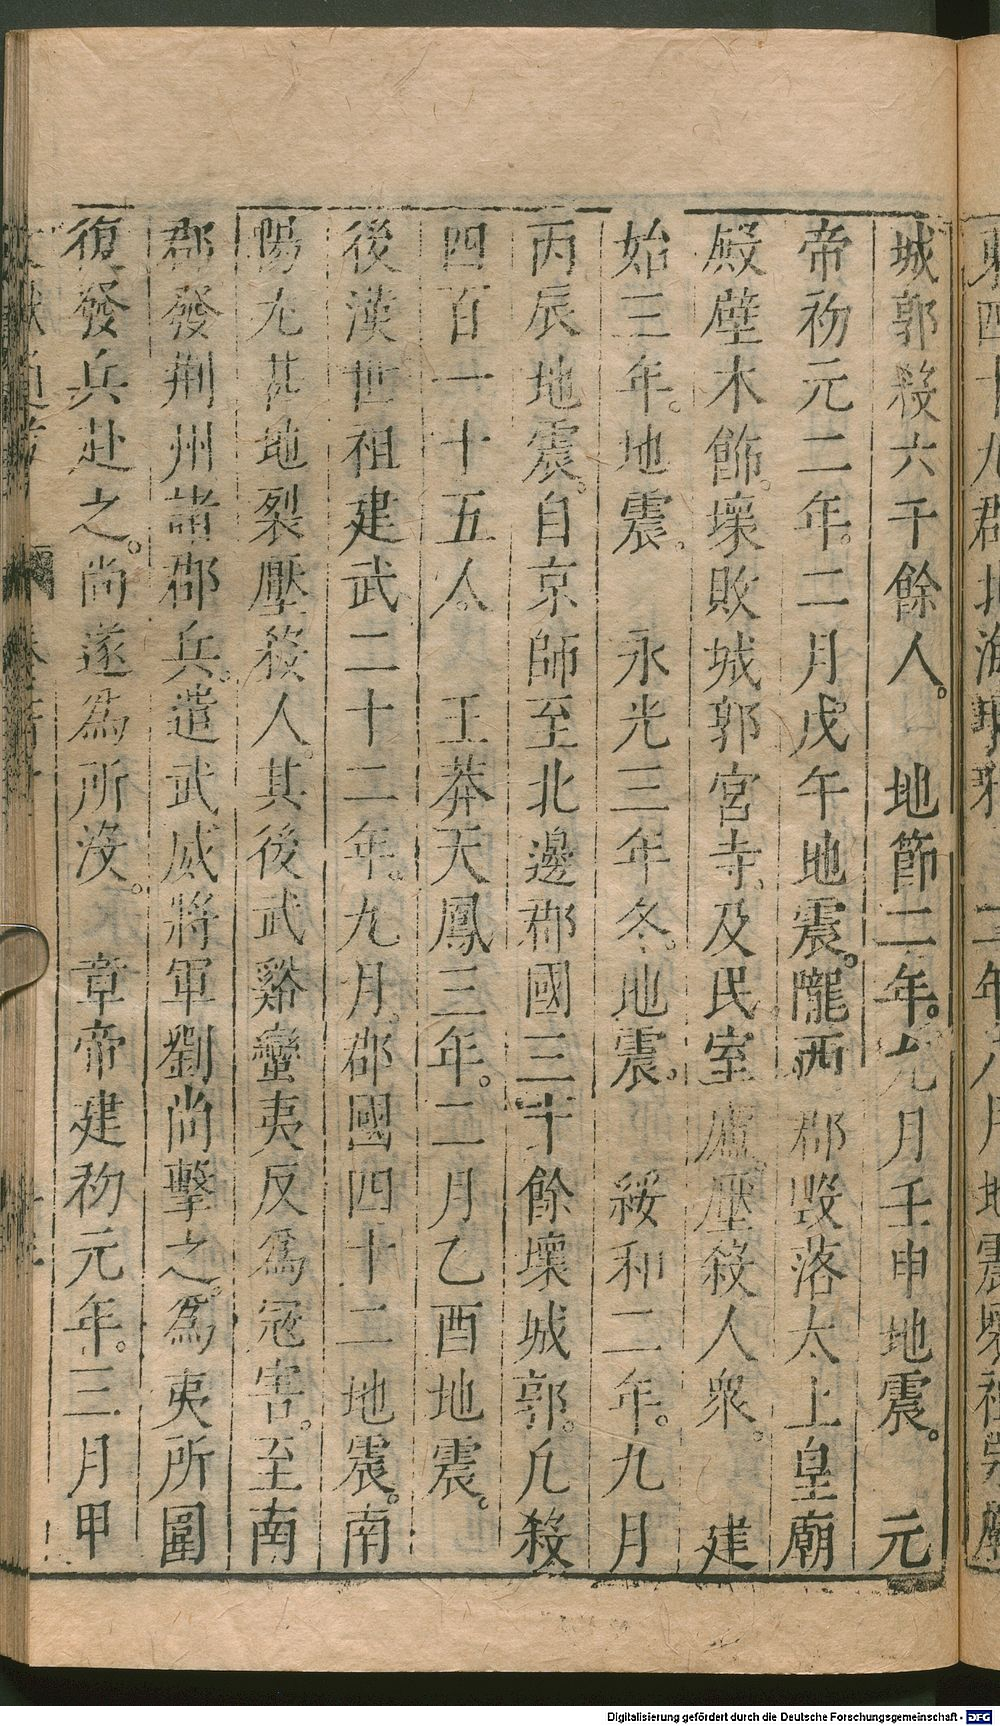 城郭殺六千餘人。　地節二年。九月壬申地震。　元
帝初元二年。二月戊午地震。隴西郡毀落太上皇廟
殿壁木飾。壞敗城郭宮寺。及民室廬。壓殺人衆。　建
始三年。地震。　永光三年冬。地震。　綏和二年。九月
丙辰地震。自京師至北邊郡國三十餘壞城郭。凡殺
四百一十五人。　王莽天鳳三年。二月乙酉地震。
後漢世祖建武二十二年。九月。郡國四十二地震。南
陽尤甚地裂壓殺人。其後武谿蠻夷反為寇害。至南
郡發荆州諸郡兵。遣武威將軍劉尚擊之。為夷所圍
復發兵赴之。尚遂為所沒。　章帝建初元年。三月甲
Digitalisierung gefördert durch die Deutsche Forschungsgemeinschaft - DFG